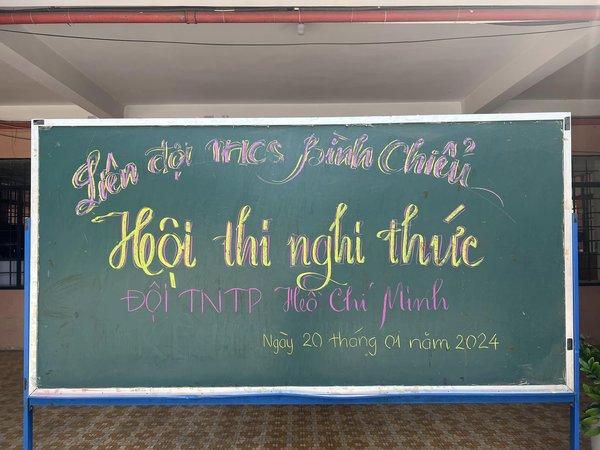 Liên đội THCS Bình Chiểu
Hội thi nghi thức
ĐỘI TNTP Hồ Chí Minh
Ngày 20 tháng 01 năm 2024